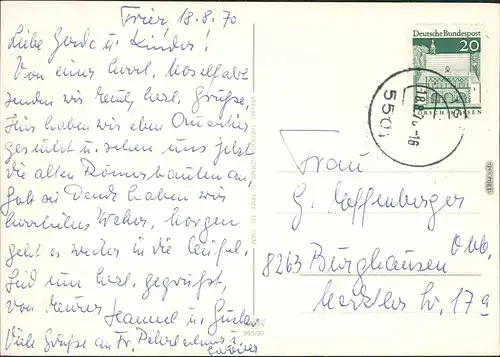 Trier, 18.8.70
Liebe Gerda u. Kinder!
Von einer herrl. Moselfahrt
senden wir Euch herzl. Grüße,
Hier haben wir eben Quartier
gesucht u. sehen uns jetzt
die alten Römerbauten an,
Gott sei Dank haben wir
herrliches Wetter, Morgen
geht es weiter in die Eifel.
Seid nun herzl. gegrüßt,
von Eurer
Hannel u. Gustav
Viele Grüße an Fr.
Deutsche Bundespost
20
LORSCH HESSEN
5501
18.8.70-16
Frau
G. Loffenberger
8263 Burghausen Obb.
Marktler Str. 17a